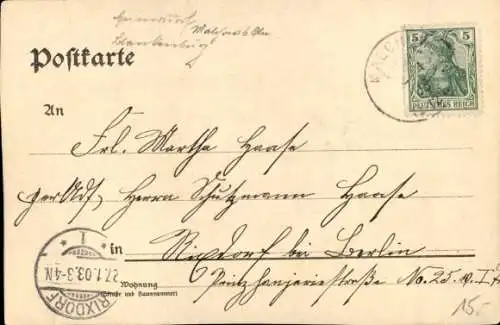 Malchow b. Bln
Blankenburg
Postkarte
5 5
DEUTSCHES REICH
MALCH
An
Frl. Martha Haase
per Adr. Herrn Schutzmann Haase
in Rixdorf bei Berlin
Wohnung
(Straße und Hausnummer)
Prinz Handjeristraße No. 25
1
27.1.03.3-4N
RIXDORF
15.-